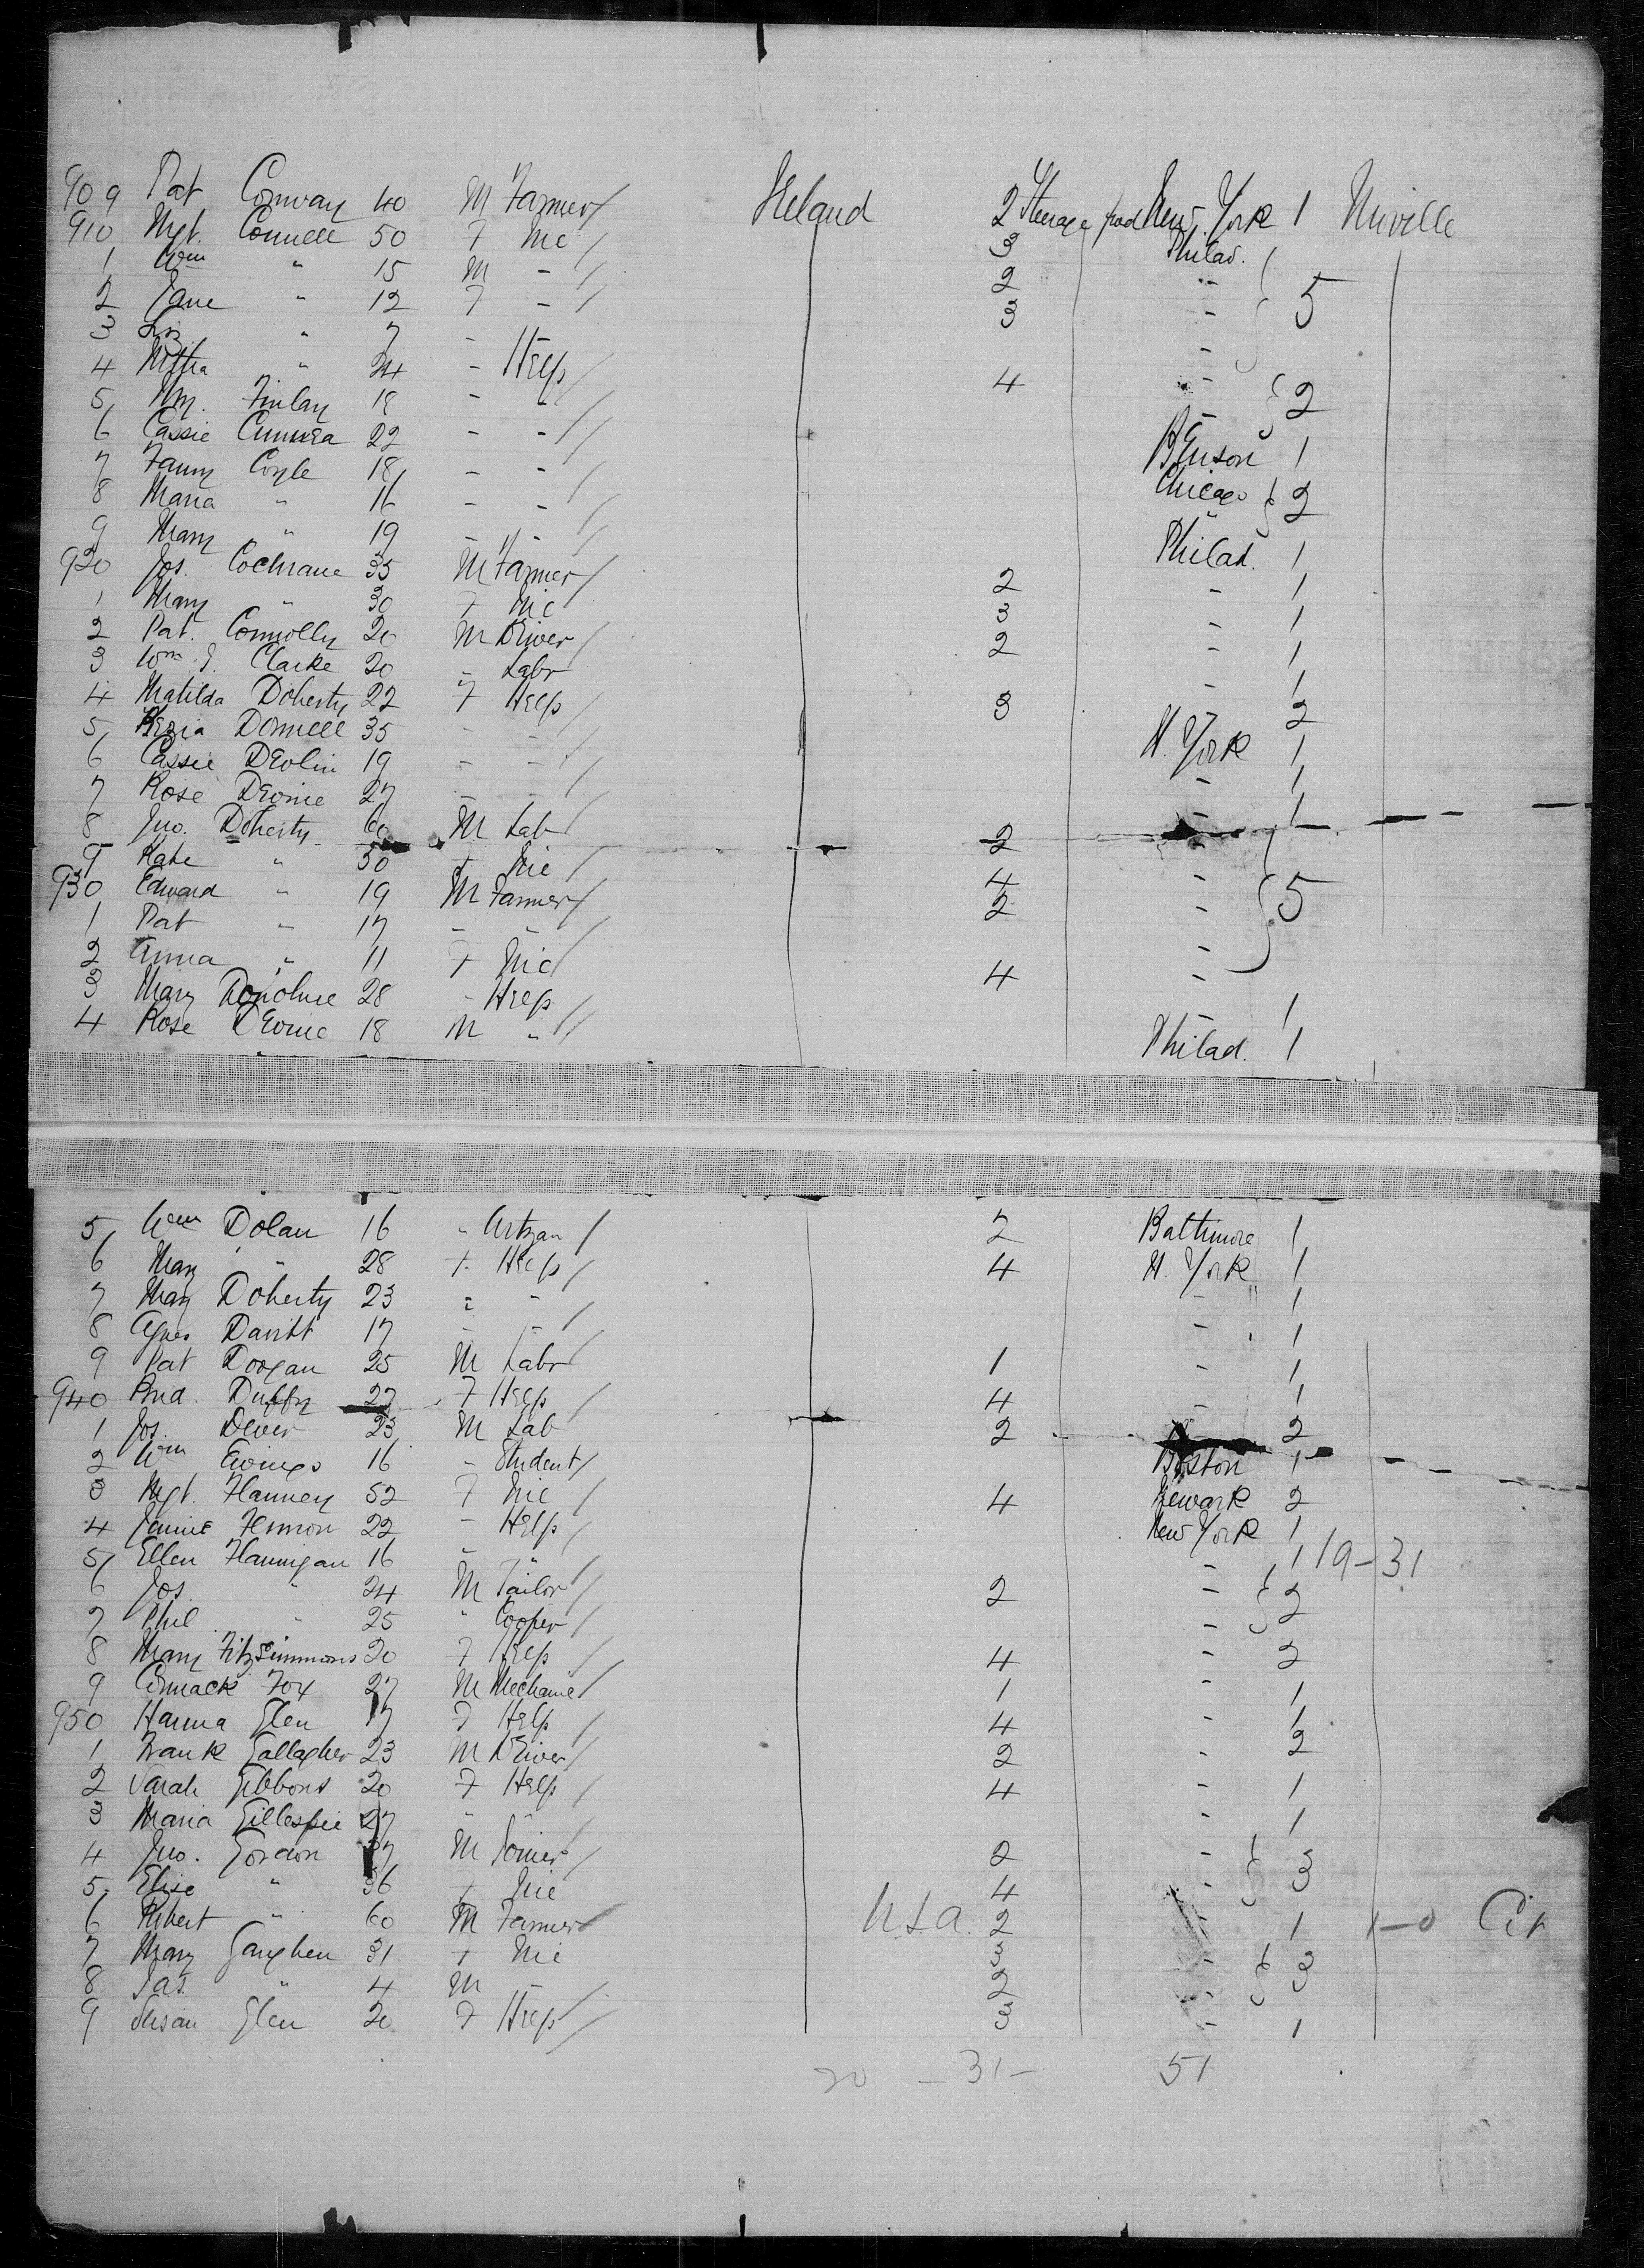 909 Pat Conway 40 M Farmer / Ireland 2 Steerage New York 1
910 Mgt. Connell 50 F 3 Philad.
1 Wm " 15 M - / 2 -
2 Jane " 12 F - / 3 - 5
3 " 7 - - -
4 " 24 - Help / 4 -
5 Finlay 18 - - / - 2
6 Cassie 22 - - / 1
7 Fanny Coyle 18 - - / Chicago
8 Maria " 16 - - / " 2
9 Mary " 19 - - / Philad. 1
920 Jos. Cochrane 35 M Farmer / 2 - 1
1 Mary " 30 F 3 - 1
2 Pat. Connolly 20 M Driver / 2 - 1
3 Wm J. Clarke 20 " Labr - 1
4 Matilda Doherty 22 F Help / 3 - 2
5 Donnell 35 - - / N. York 1
6 Cassie Devlin 19 - - / - 1
7 Rose Devine 27 - - / - 1
8 Jno. Doherty 60 M Lab / 2 -
9 Kate " 50 F / 4 -
930 Edward " 19 M Farmer / 2 - 5
1 Pat " 17 - - -
2 Anna " 11 F 4 -
3 Mary Donohue 28 - Help / - 1
4 Rose Devine 18 M " / Philad. 1
5 Wm Dolan 16 " Artzan / 2 Baltimore 1
6 Mary " 28 F Help / 4 N. York 1
7 Mary Doherty 23 " - / - 1
8 Agnes Davitt 17 - - / - 1
9 Pat Doogan 25 M Labr / 1 - 1
940 Brid. Duffy 22 F Help / 4 - 1
1 Jos. Dever 23 M Lab / 2 - 2
2 Wm Ewings 16 - Student / Boston 1
3 Mgt. Flannery 52 F / 4 Newark 2
4 Jennie 22 - Help / New York 1
5 Ellen Flannigan 16 " " / - 1 19-31
6 Jos " 24 M Tailor / 2 -
7 Phil " 25 " Cooper / - 2
8 Mary Fitzsimmons 20 F Help / 4 - 2
9 Cormack Fox 27 M Mechanic / 1 - 1
950 Hanna Glen 17 F Help / 4 - 1
1 Frank Gallagher 23 M Driver / 2 - 2
2 Sarah Gibbons 20 F Help / 4 - 1
3 Maria Gillespie 27 " " / - 1
4 Jno. Gordon 37 M Joiner / 2 -
5 Elise " 36 F 4 - 3
6 Robert " 60 M Farmer U.S.A. 2 - 1 1-0 Cit
7 Mary Gaughen 31 F 3 -
8 Jas " 4 M - 2 - 3
9 Susan Glen 20 F Help / 3 - 1
20 - 31 - 51